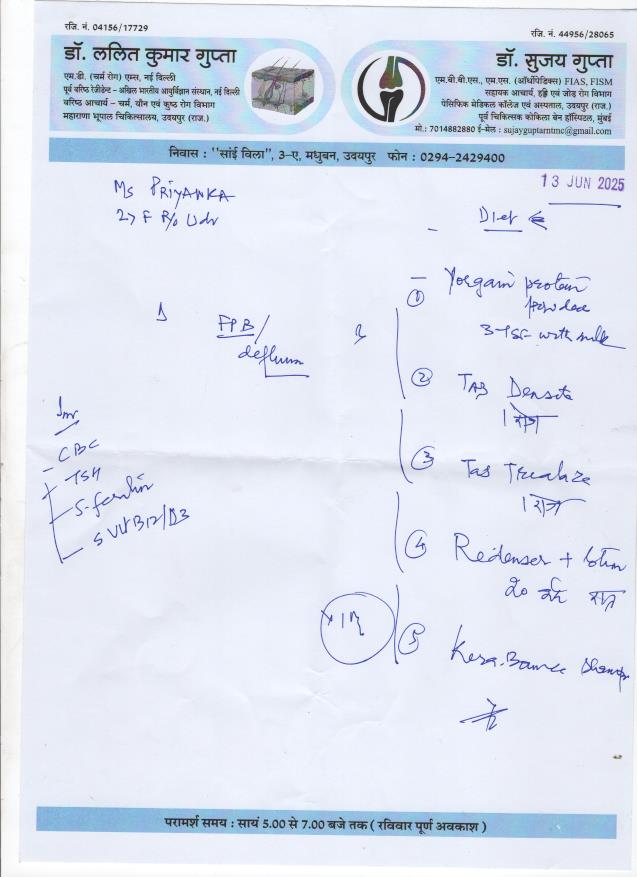 रजि. नं. 04156/17729
डॉ. ललित कुमार गुप्ता
एम.डी. (चर्म रोग) एम्स, नई दिल्ली
पूर्व वरिष्ठ रेजीडेन्ट - अखिल भारतीय आयुर्विज्ञान संस्थान, नई दिल्ली
वरिष्ठ आचार्य - चर्म, यौन एवं कुष्ठ रोग विभाग
महाराणा भूपाल चिकित्सालय, उदयपुर (राज.)
रजि. नं. 44956/28065
डॉ. सुजय गुप्ता
एम.बी.बी.एस., एम.एस. (ऑर्थोपेडिक्स) FIAS, FISM
सहायक आचार्य, हड्डी एवं जोड़ रोग विभाग
पेसिफिक मेडिकल कॉलेज एवं अस्पताल, उदयपुर (राज.)
पूर्व चिकित्सक कोकिला बेन हॉस्पिटल, मुंबई
मो.: 7014882880 ई-मेल : sujayguptarntmc@gmail.com
निवास : "सांई विला", 3-ए, मधुबन, उदयपुर फोन : 0294-2429400
13 JUN 2025
Ms PRIYANKA
27 F R/o Udr
Diet
FPB/
defluvium
Inv
CBC
TSH
S-ferritin
S Vit B12/D3
① Yorgain protein
powder
3-TSF with milk
② TAB Densita
③ Tab
④ Redenser + lotion
20
⑤ Kera-Bounce Shampoo
परामर्श समय : सायं 5.00 से 7.00 बजे तक ( रविवार पूर्ण अवकाश )